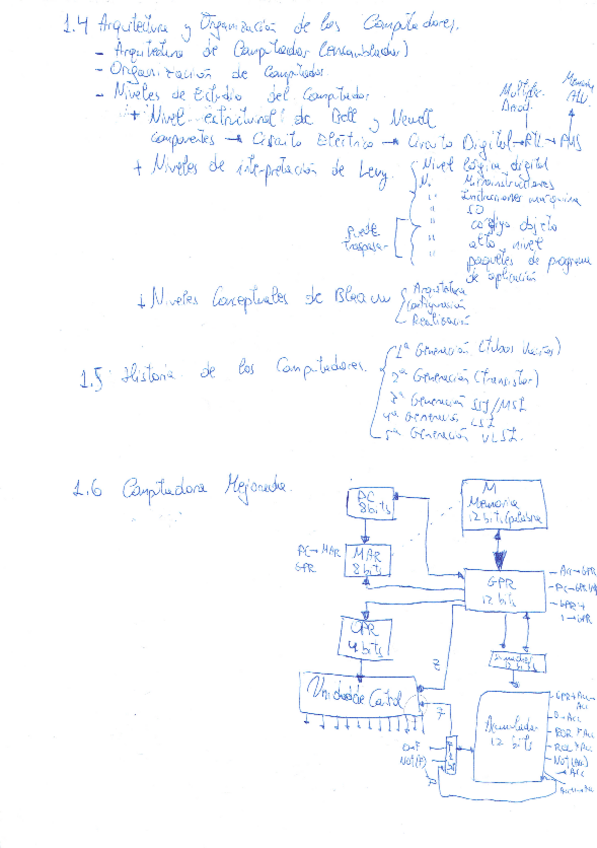 1.4 Arquitectura y Organización de los Computadores.
- Arquitectura de Computador (ensamblador)
- Organización de Computador
- Niveles de Estudio del Computador
+ Nivel estructural de Bell y Newell
Componentes → Circuito Eléctrico → Circuito Digital → RTL → PMS
Memoria
ALU
+ Niveles de interpretación de Levy.
Nivel lógica digital
N. Microinstrucciones
" Instrucciones máquina
" SO
" código objeto
" alto nivel
" paquetes de programa
de aplicación
+ Niveles Conceptuales de Blaauw
Arquitectura
Configuración
Realización
1.5 Historia de los Computadores.
1ª Generación (tubos vacíos)
2ª Generación (transistor)
3ª Generación SSI/MSI
4ª Generación LSI
5ª Generación VLSI.
1.6 Computadora Mejorada.
PC
8 bits
M
Memoria
12 bits/palabra
PC → MAR
GPR
MAR
8 bits
GPR
12 bits
Acc → GPR
GPR +
1 → GPR
OPR
4 bits
Z
12 bits
Unidad de Control
Z
Acumulador
12 bits
GPR + Acc
Acc
0 → Acc
ROR F Acc
ROL F Acc
NOT(Acc)
→ Acc
0 → F
NOT(F)
F
1
bit
F